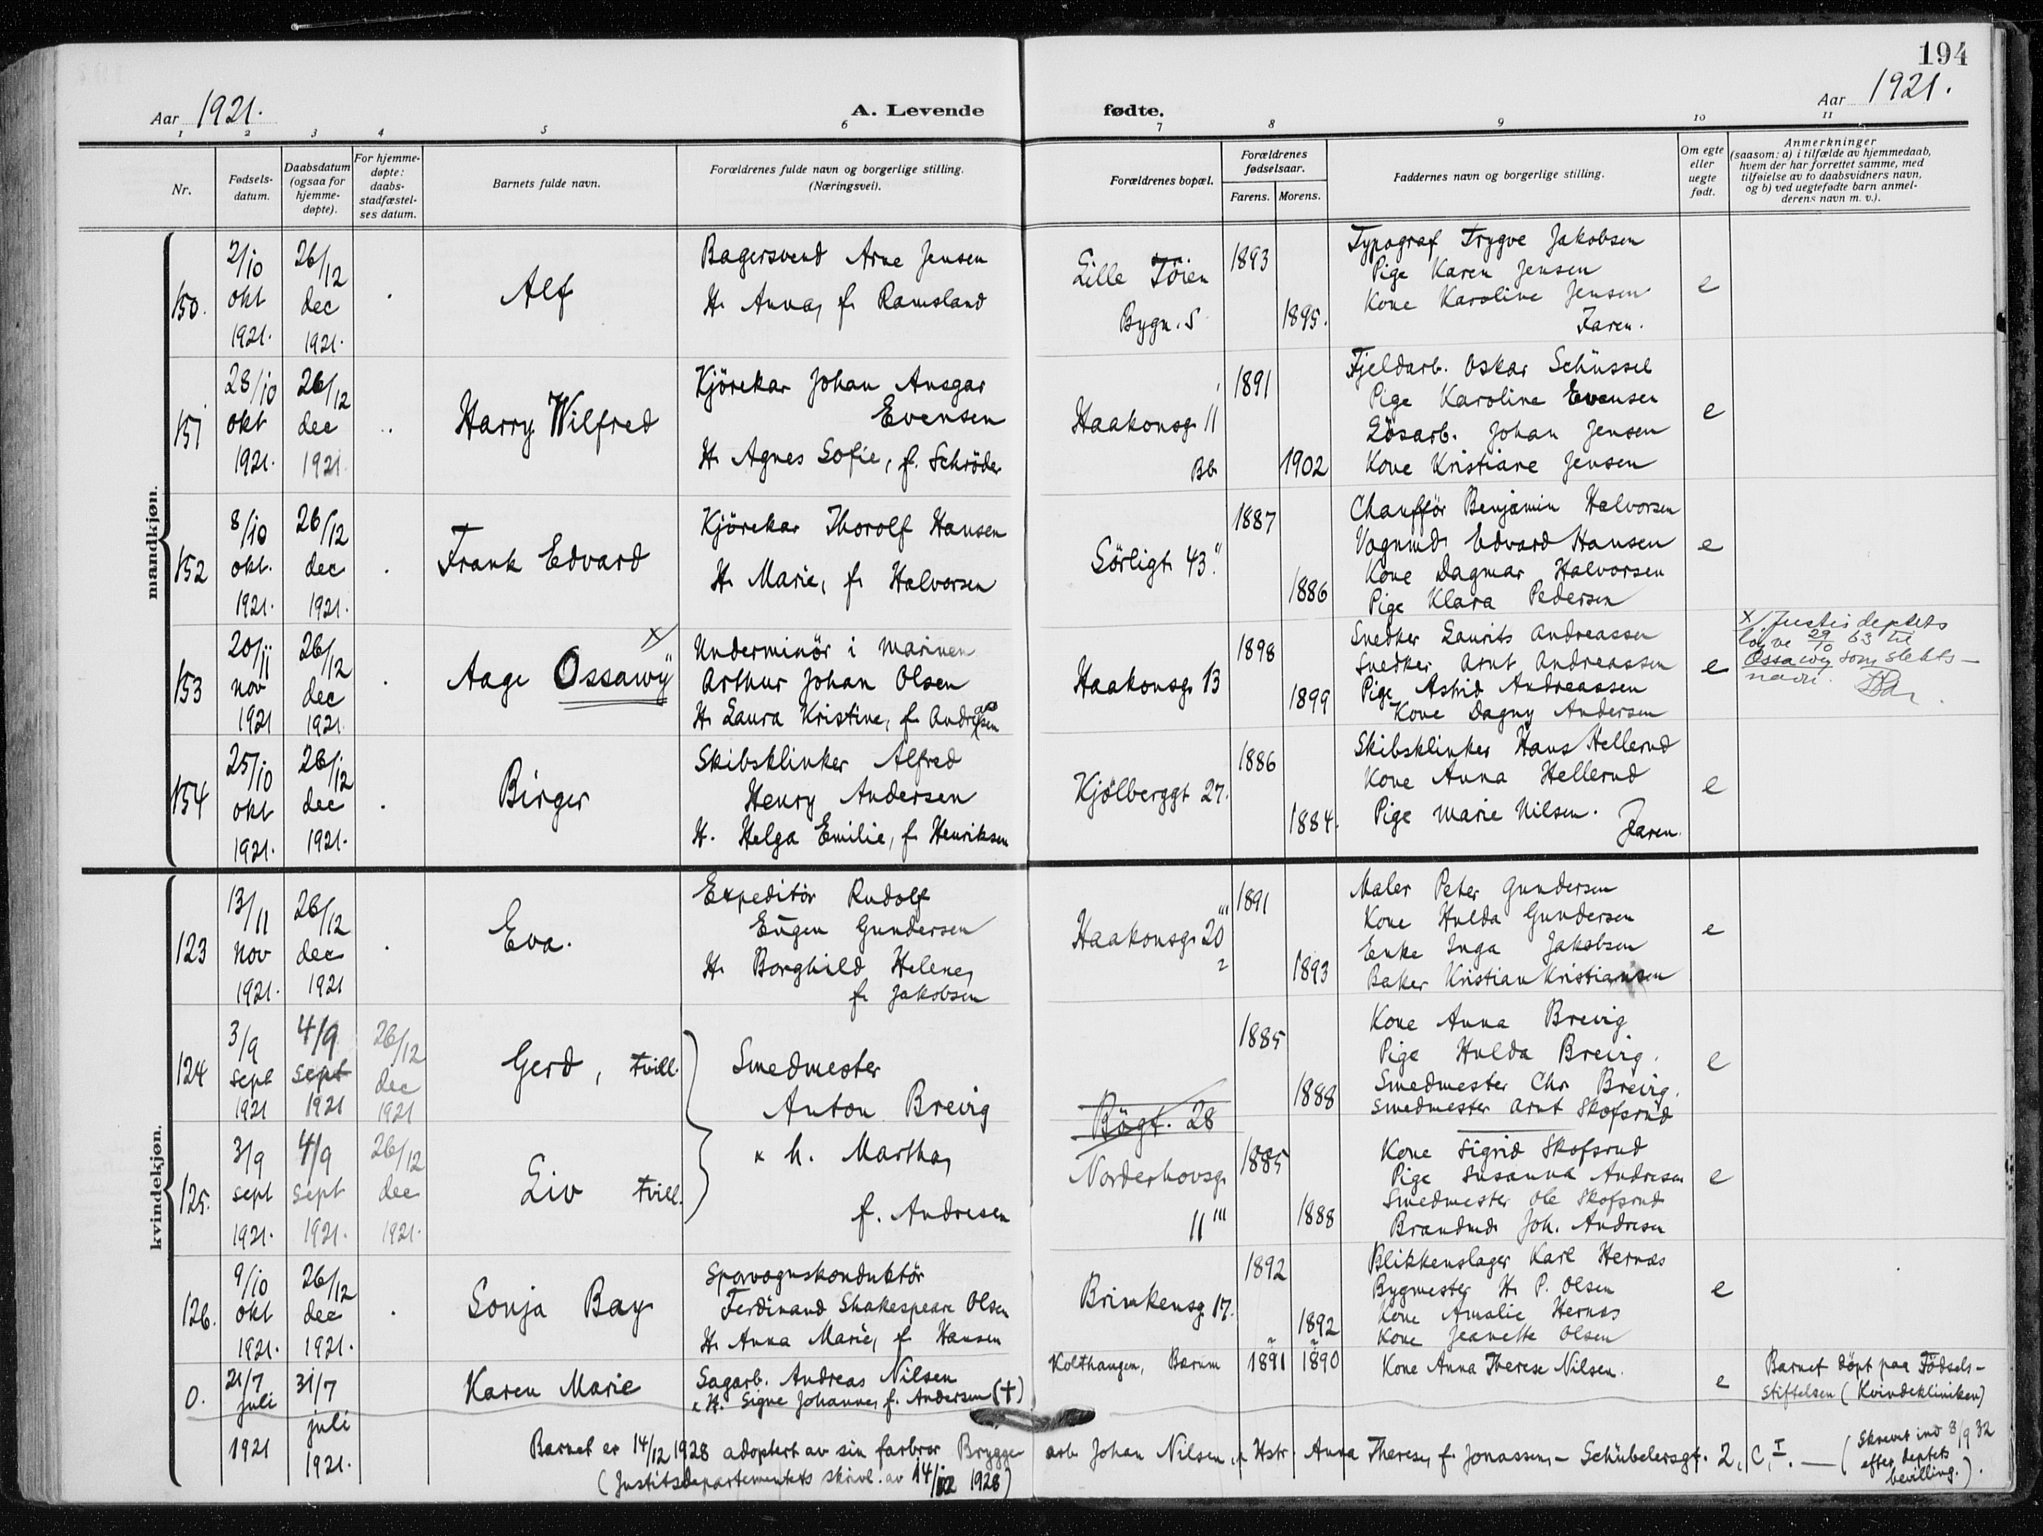 194
Aar 1921.
A. Levende fødte.
Aar 1921.
1 2 3 4 5 6 7 8 9 10 11
Nr.
Fødsels-
datum.
Daabsdatum
(ogsaa for
hjemme-
døpte).
For hjemme-
døpte:
daabs-
stadfæstel-
ses datum.
Barnets fulde navn.
Forældrenes fulde navn og borgerlige stilling.
(Næringsvei).
Forældrenes bopæl.
Forældrenes
fødselsaar.
Farens. Morens.
Faddernes navn og borgerlige stilling.
Om egte
eller
uegte
født.
Anmerkninger
(saasom: a) i tilfælde av hjemmedaab,
hvem der har forrettet samme, med
tilføielse av to daabsvidners navn,
og b) ved uegtefødte barn anmel-
derens navn m. v.).
mandkjøn.
150.
2/10
okt
1921.
26/12
dec
1921.
Alf
Bagersvend Arne Jensen
H. Anna, f. Ramsland
Lille Töien
Bygn. S
1893
1895.
Typograf Trygve Jakobsen
Pige Karen Jensen
Kone Karoline Jensen
Faren.
e
151
28/10
okt
1921.
26/12
dec
1921
Harry Wilfred
Kjörekar Johan Ansgar
Evensen
H. Agnes Sofie, f. Schröder
Haakonsg. 11
Bb.
1891
1902
Fjeldarb. Oskar Schüssel
Pige Karoline Evensen
Lösarb. Johan Jensen
Kone Kristiane Jensen
e
152
8/10
okt.
1921.
26/12
dec
1921.
Frank Edvard
Kjörekar Thorolf Hansen
H. Marie, f. Halvorsen
Sörligt. 43."
1887
1886
Chaufför Benjamin Halvorsen
Vognmd. Edvard Hansen
Kone Dagmar Halvorsen
Pige Klara Pedersen
e
153
20/11
nov
1921
26/12
dec
1921.
Aage Ossawÿ x/
Underminör i marinen
Arthur Johan Olsen
H. Laura Kristine, f. Andreasen
Haakonsg. 13
1898
1899
Snedker Laurits Andreassen
Snedker Arnt Andreassen
Pige Astrid Andreassen
Kone Dagny Andersen
e
x/. Justisdeptets
lovve 29/10 63 til
Ossawy som slekts-
navn.
154
25/10
okt
1921.
26/12
dec
1921.
Birger
Skibsklinker Alfred
Henry Andersen
H. Helga Emilie, f. Henriksen
Kjölberggt. 27.
1886
1884.
Skibsklinker Hans Hellerud
Kone Anna Hellerud
Pige Marie Nilsen.
Faren.
e
kvindekjøn.
123
13/11
nov
1921.
26/12
dec
1921
Eva.
Expeditör Rudolf
Eugen Gundersen
H. Borghild Helene,
f. Jakobsen
Haakonsg. 20'''
2
1891
1893
Maler Peter Gundersen
Kone Hulda Gundersen
Enke Inga Jakobsen
Baker Kristian Kristiansen
e
124
3/9
sept
1921
4/9
sept
1921
26/12
dec
1921
Gerd, tvill.
Smedmester
Anton Breivig
Bögt. 28
1885
1888
Kone Anna Breivig
Pige Hulda Breivig.
Smedmester Chr. Breivig.
Smedmester Arnt Skofsrud
e
125.
3/9
sept
1921.
4/9
sept
1921.
26/12
dec
1921.
Liv tvill.
x h. Martha,
f. Andresen
Norderhovsg.
11'''
1885
1888
Kone Sigrid Skofsrud
Pige Susanna Andresen
Smedmester Ole Skofsrud
Brandmd. Joh. Andresen
e
126.
9/10
okt
1921.
26/12
dec
1921.
Sonja Bay
Sporvognskonduktör
Ferdinand Shakespeare Olsen
H. Anna Marie, f. Hansen
Brinkensg. 17.
1892
1892
Blikkenslager Karl Hernæs
Bygmester H. P. Olsen
Kone Amalie Hernæs
Kone Jeanette Olsen
e
0.
21/7
juli
1921
31/7
juli
1921.
Karen Marie
Sagarb. Andreas Nilsen
x H. Signe Johanne, f. Andersen (†)
Kolthaugen, Bærum
1891
1890
Kone Anna Therese Nilsen.
e
Barnet döpt paa Fødsels-
stiftelsen (Kvindekliniken)
Barnet er 14/12 1928 adoptert av sin farbror Brygge arb. Johan Nilsen, x Hstr. Anna Therese, f. Jonassen, – Schübelersgt. 2, C, I. — (Skrevet ind 3/9 32
efter deptets
bevilling.).
(Justitsdepartementets skriv. av 14/12 1928)